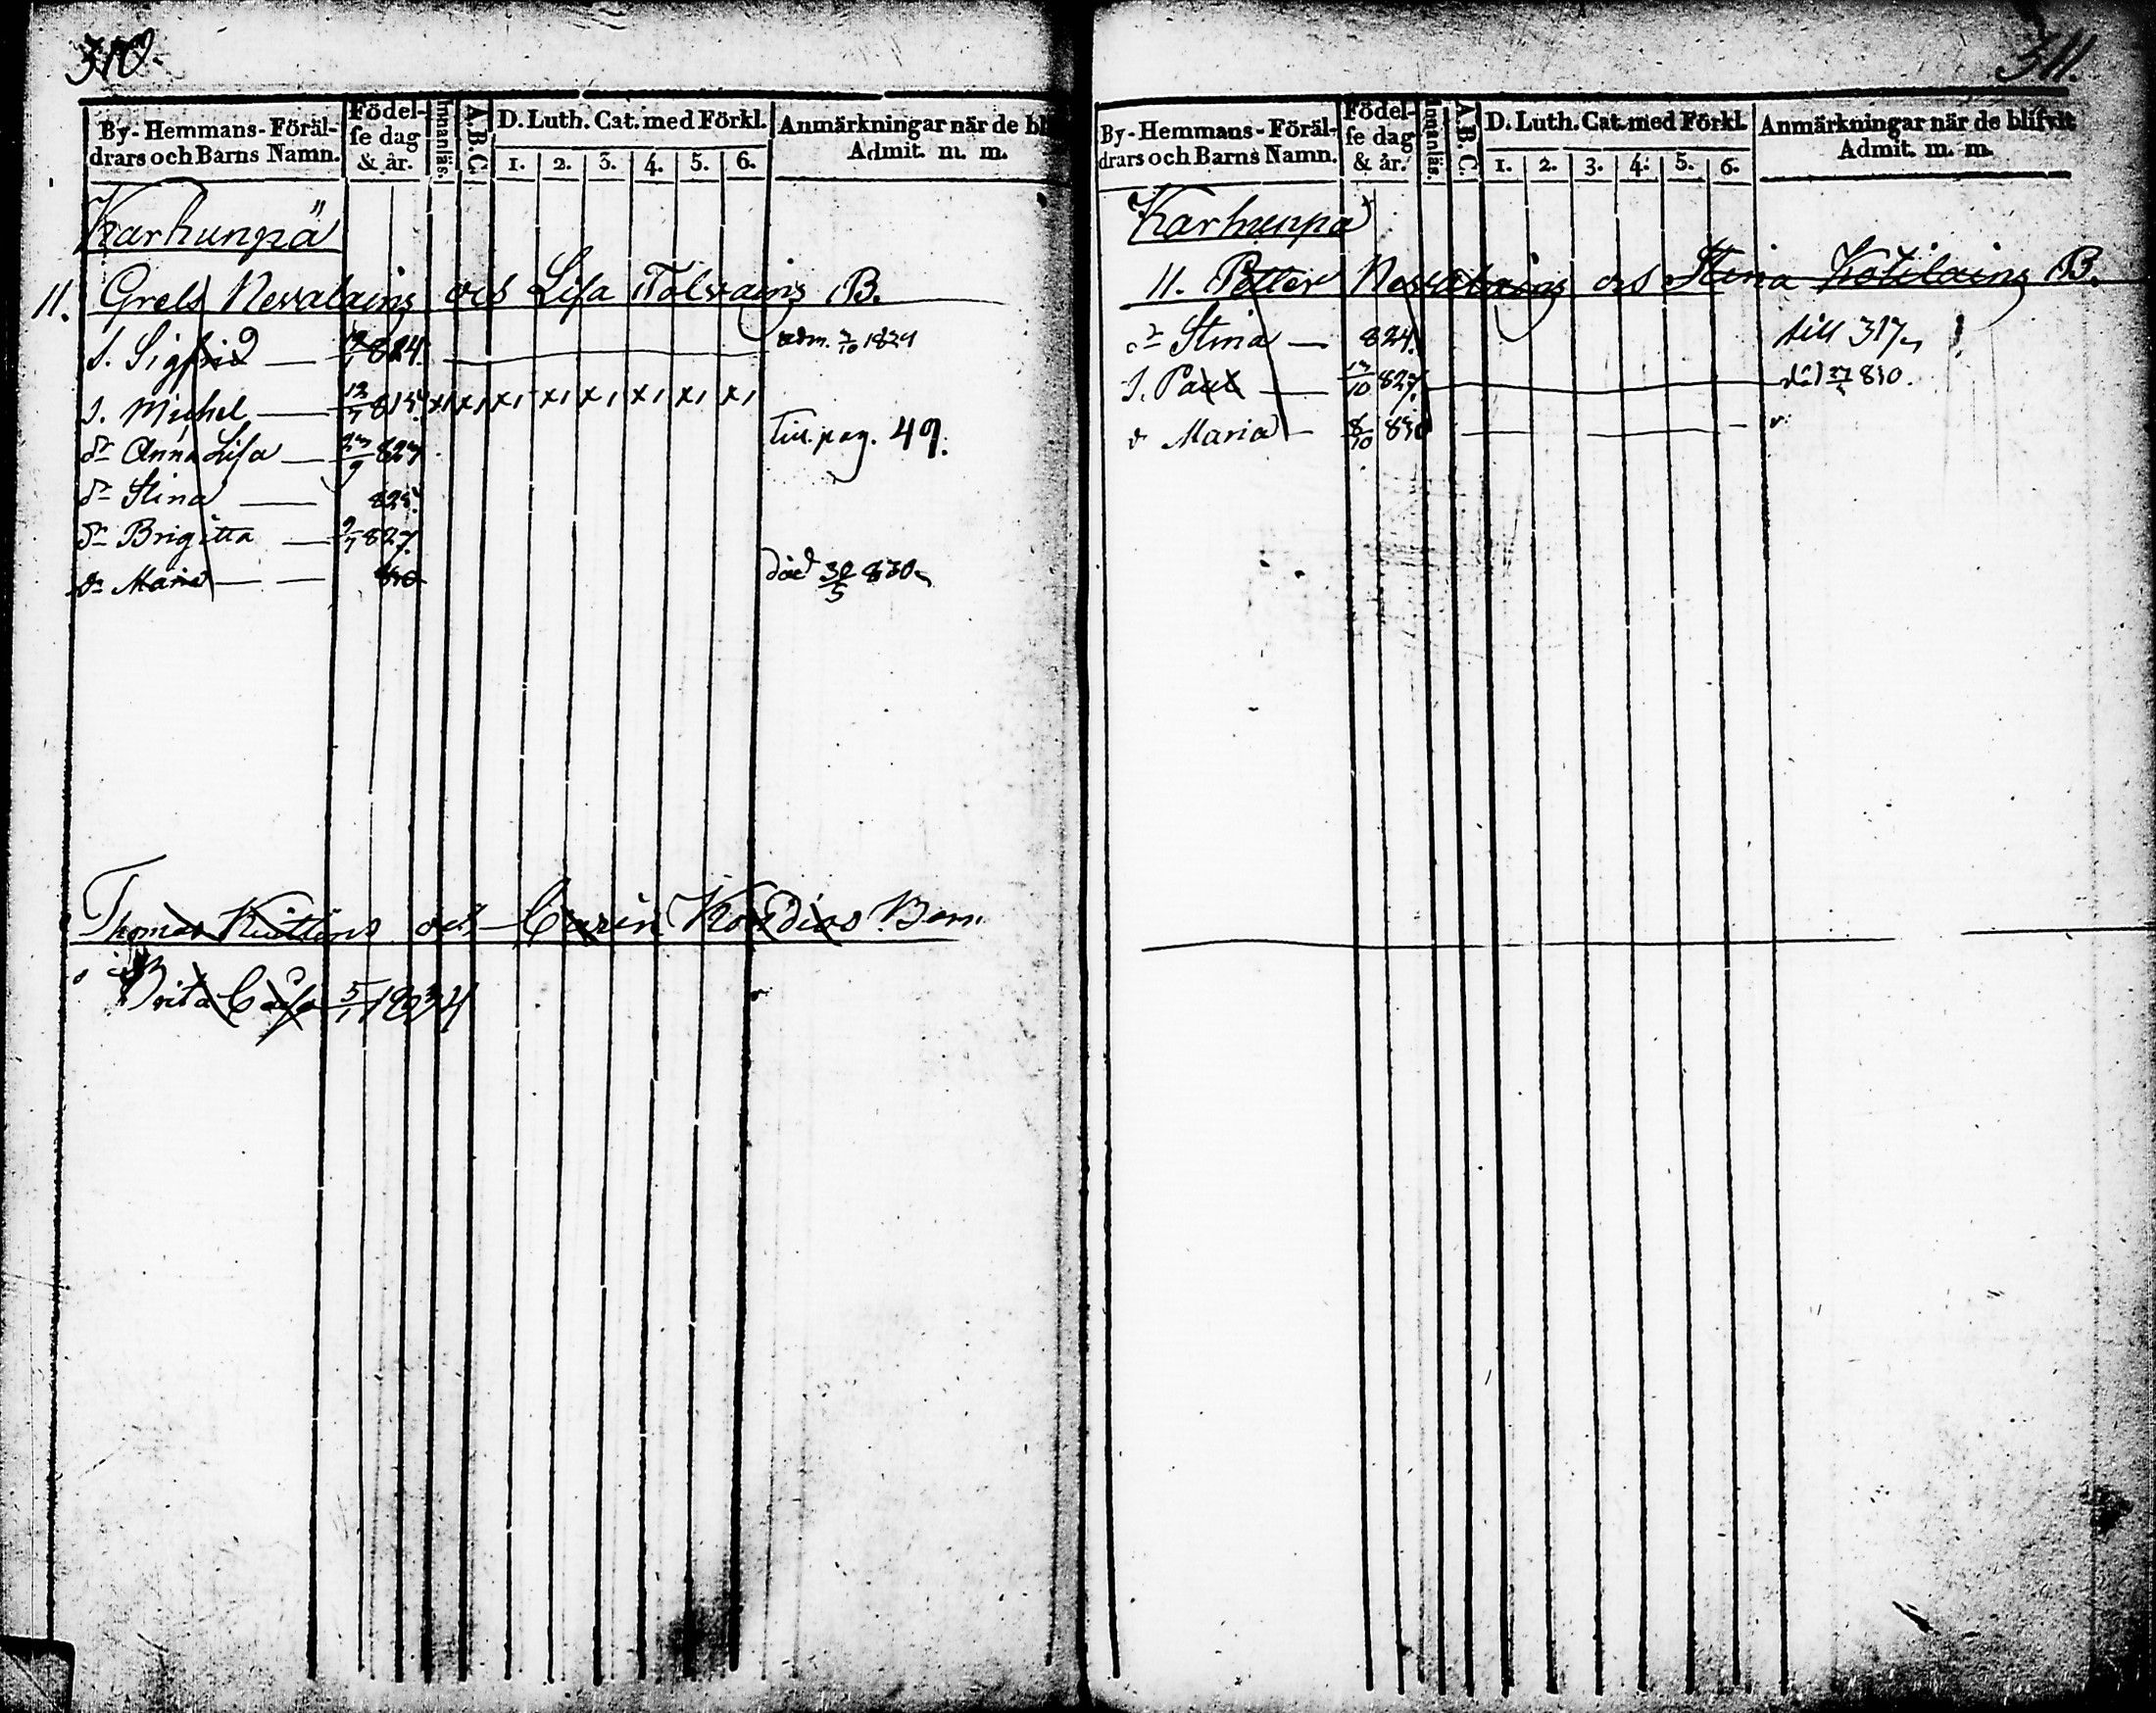 310.
By-Hemmans-Föräl-
drars och Barns Namn.
Födel-
se dag
& år.
Innanläs.
A.B.C.
D. Luth. Cat. med Förkl.
1. 2. 3. 4. 5. 6.
Anmärkningar när de bl
Admit. m. m.
Karhunpä
11. Grels Nevalains och Lisa Tolvains B.
S. Sigfrid 824. adm. 1829
S. Michel 12/7 815. x1 x1 x1 x1 x1 x1 x1 x1
dr Anna Lisa 823 Till pag. 49.
dr Stina 825.
dr Brigitta 827.
dr Maria 830 död 30/5 830
Thomas och Carin Barn.
Brita Caisa 5/1 1834
311.
By-Hemmans-Föräl-
drars och Barns Namn.
Födel-
se dag
& år.
Innanläs.
A.B.C.
D. Luth. Cat. med Förkl.
1. 2. 3. 4. 5. 6.
Anmärkningar när de blifvit
Admit. m. m.
Karhunpä
11. Petter Nevalains och Stina Kotilains B.
dr Stina 824. till 317
S. Paul 13/10 827. död 830.
dr Maria 8/10 830